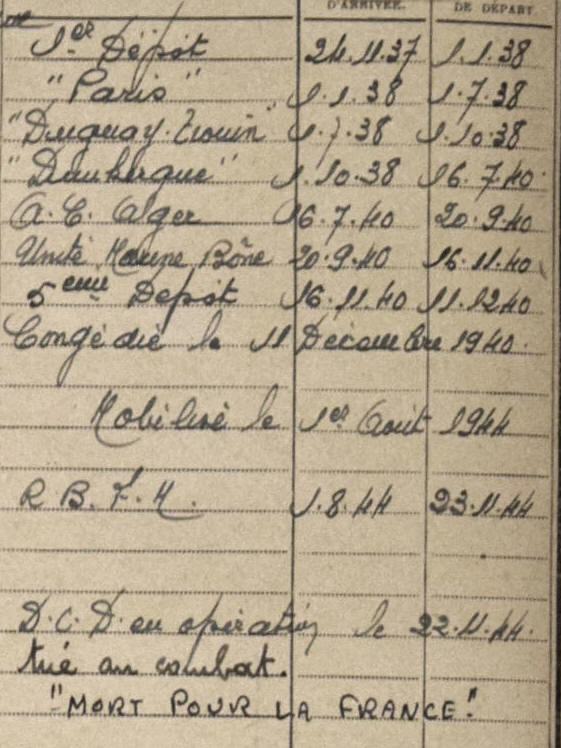 D'ARRIVÉE. DE DÉPART.
1er Dépôt 24.11.37 1.1.38
"Paris" 1.1.38 1.7.38
"Duguay-Trouin" 1.7.38 1.10.38
"Dunkerque" 1.10.38 16.7.40
A.C. Alger 16.7.40 20.9.40
Unité Marine Bône 20.9.40 16.11.40
5eme Dépôt 16.11.40 11.12.40
Congédié le 11 Décembre 1940.
Mobilisé le 1er Août 1944
R B.F.M. 1.8.44 23.11.44
D.C.D en opération le 22.11.44.
tué au combat.
"MORT POUR LA FRANCE"